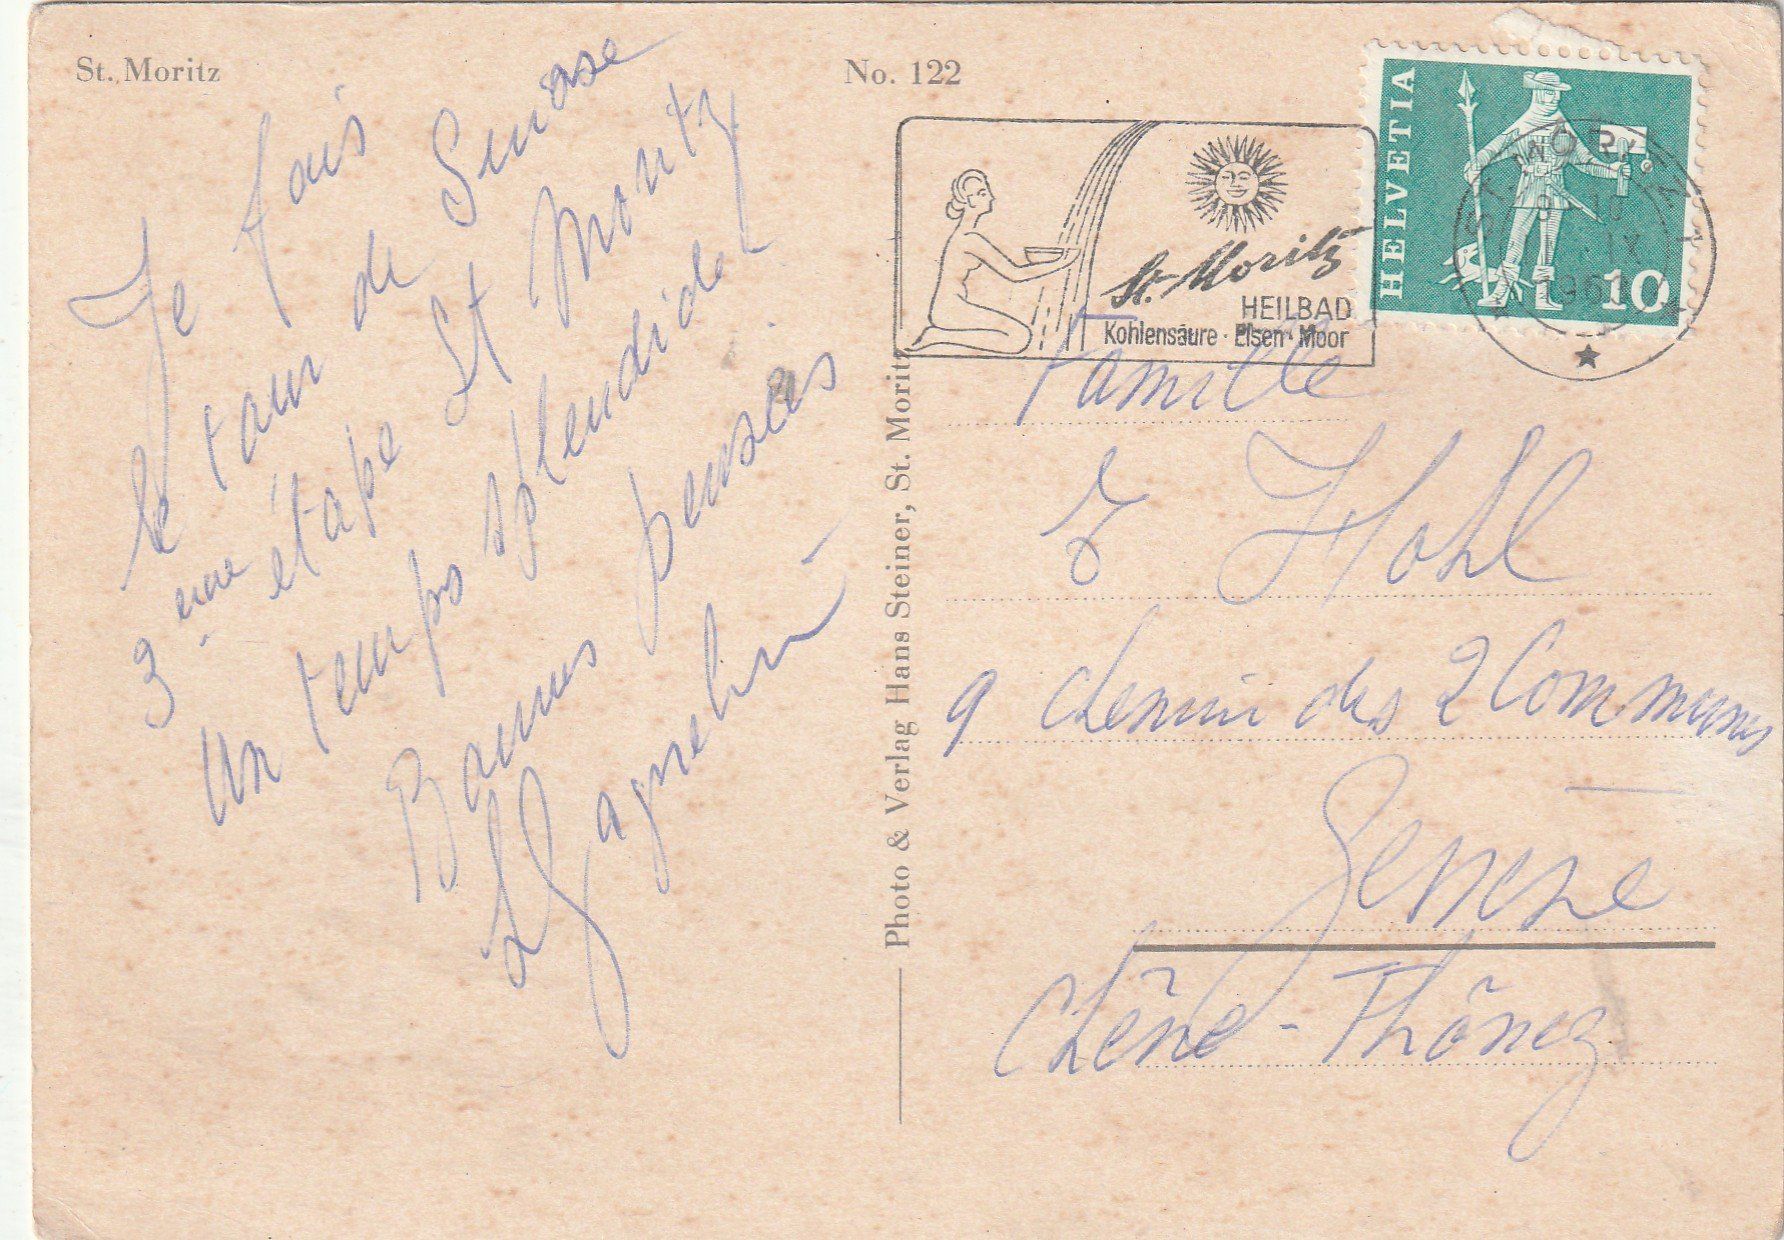 St. Moritz
No. 122
Je fais
le tour de Suisse
3 ème étape St Moritz
un temps splendide
Bonnes pensées
St. Moritz
HEILBAD
Kohlensäure · Eisen · Moor
HELVETIA
10
ST. MORITZ
Photo & Verlag Hans Steiner, St. Moritz
Famille
E Hohl
9 chemin des 2 Communes
Genève
Chêne-Thônex